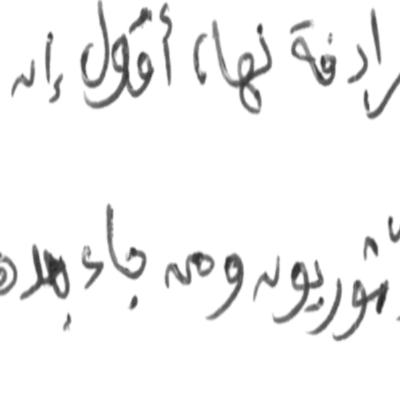 رادفة لها، أقول إن
ثوريون ومن جاء بعد